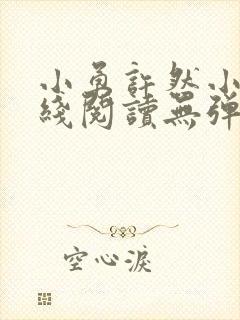 小勇許然小
綫閱讀無彈
空心淚